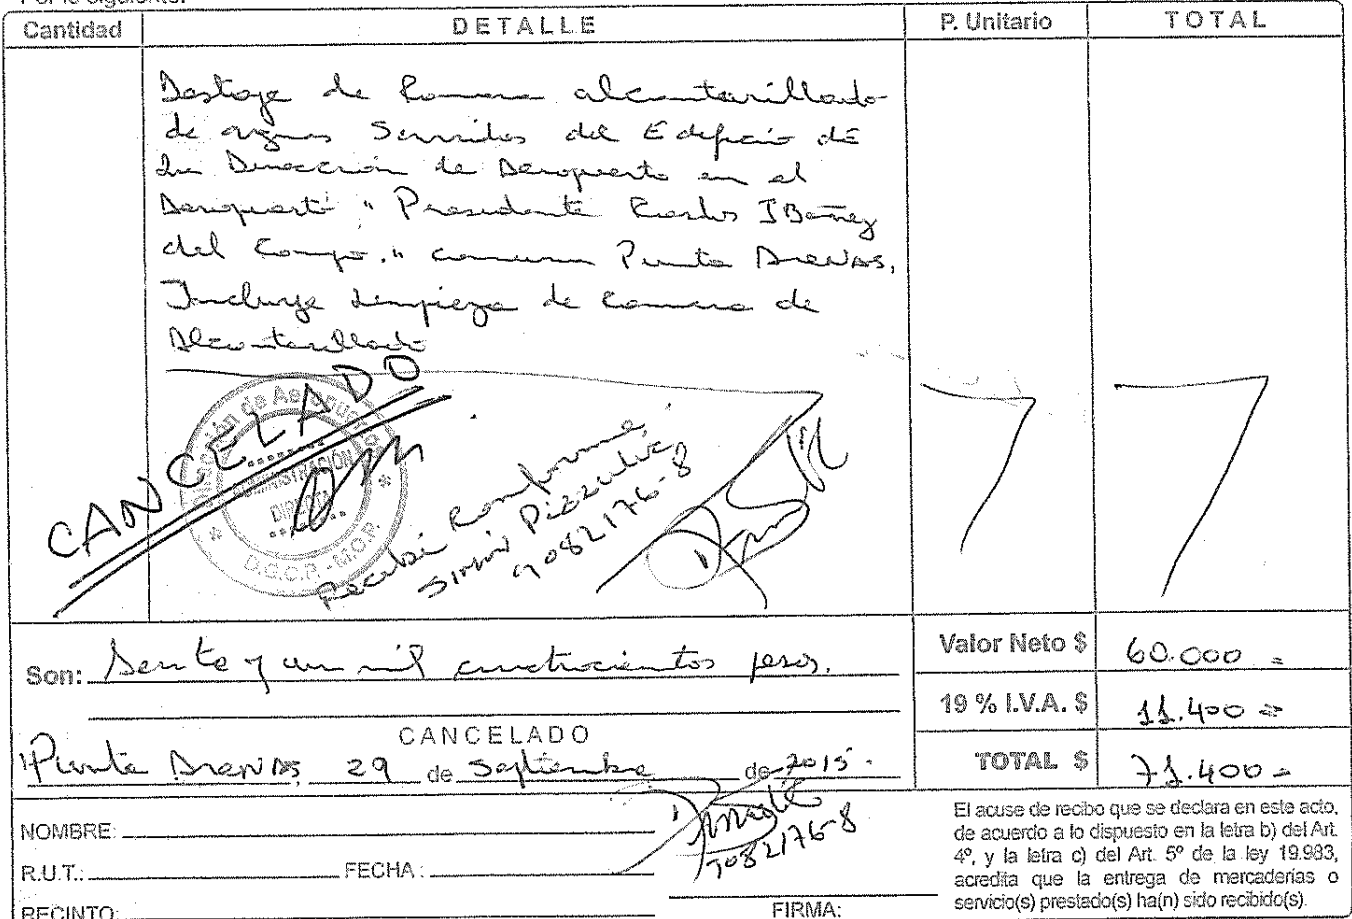 Cantidad DETALLE P. Unitario TOTAL
Destape de Camara alcantarillado
de aguas Servidas del Edificio de
la Dirección de Aeropuerto en el
Aeropuerto "Presidente Carlos IBañez
del Campo." comuna Punta Arenas.
Incluye Limpieza de Camara de
Alcantarillado
CANCELADO
Dirección de Aeropuertos
ADMINISTRACION
DIRECTA
D.G.O.P. - M.O.P.
Recibí Conforme
9082176-8
Son: Setenta y un mil cuatrocientos pesos.
Valor Neto $ 60.000 =
19 % I.V.A. $ 11.400 =
TOTAL $ 71.400 =
CANCELADO
Punta Arenas, 29 de Septiembre de 2015.
9082176-8
NOMBRE:
R.U.T.: FECHA:
RECINTO: FIRMA:
El acuse de recibo que se declara en este acto,
de acuerdo a lo dispuesto en la letra b) del Art.
4º, y la letra c) del Art. 5º de la ley 19.983,
acredita que la entrega de mercaderías o
servicio(s) prestado(s) ha(n) sido recibido(s).